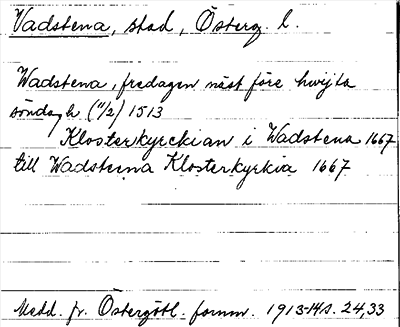 Vadstena, stad, Österg. l.
Wadstena, fredagen näst före hwijta
söndag h (11/2) 1513
Klosterkyrckian i Wadstena 1667
till Wadstena Klosterkyrkia 1667
Medd. fr. Östergötl. fornm. 1913-14 s. 24,33